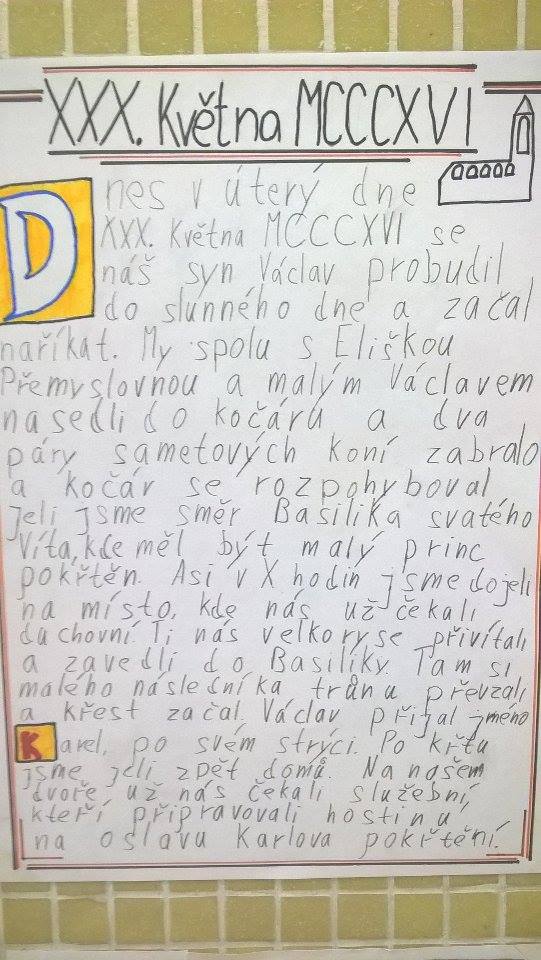 XXX. Května MCCCXVI
Dnes v úterý dne
XXX. Května MCCCXVI se
náš syn Václav probudil
do slunného dne a začal
naříkat. My spolu s Eliškou
Přemyslovnou a malým Václavem
nasedli do kočáru a dva
páry sametových koní zabralo
a kočár se rozpohyboval
jeli jsme směr Basilika svatého
Víta, kde měl být malý princ
pokřtěn. Asi v X hodin jsme dojeli
na místo, kde nás už čekali
duchovní. Ti nás velkoryse přivítali
a zavedli do Basiliky. Tam si
malého následníka trůnu převzali
a křest začal. Václav přijal jméno
Karel, po svém strýci. Po křtu
jsme jeli zpět domů. Na našem
dvoře už nás čekali služební,
kteří připravovali hostinu
na oslavu Karlova pokřtění.